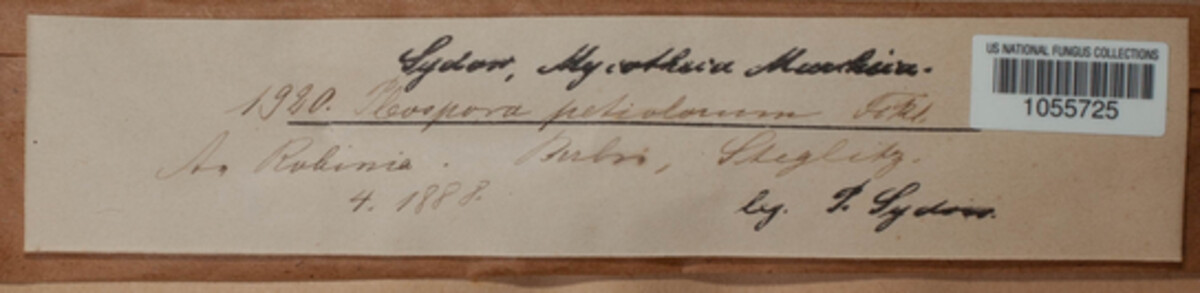 Sydow, Mycotheca Marchica.
US NATIONAL FUNGUS COLLECTIONS
1055725
1920. Pleospora petiolorum Fckl.
An Robinia. Berlin, Steglitz.
4. 1888.
leg. P. Sydow.